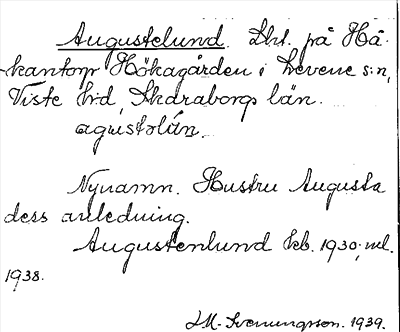 Augustelund. Lht. på Hå-
kantorp Hökagården i Levene s:n,
Viste hd, Skaraborgs län.
agustəlún.
Nynamn. Hustru Augusta
dess anledning.
Augustenlund kb. 1930;
1938.
I.M. Svenningsson. 1939.